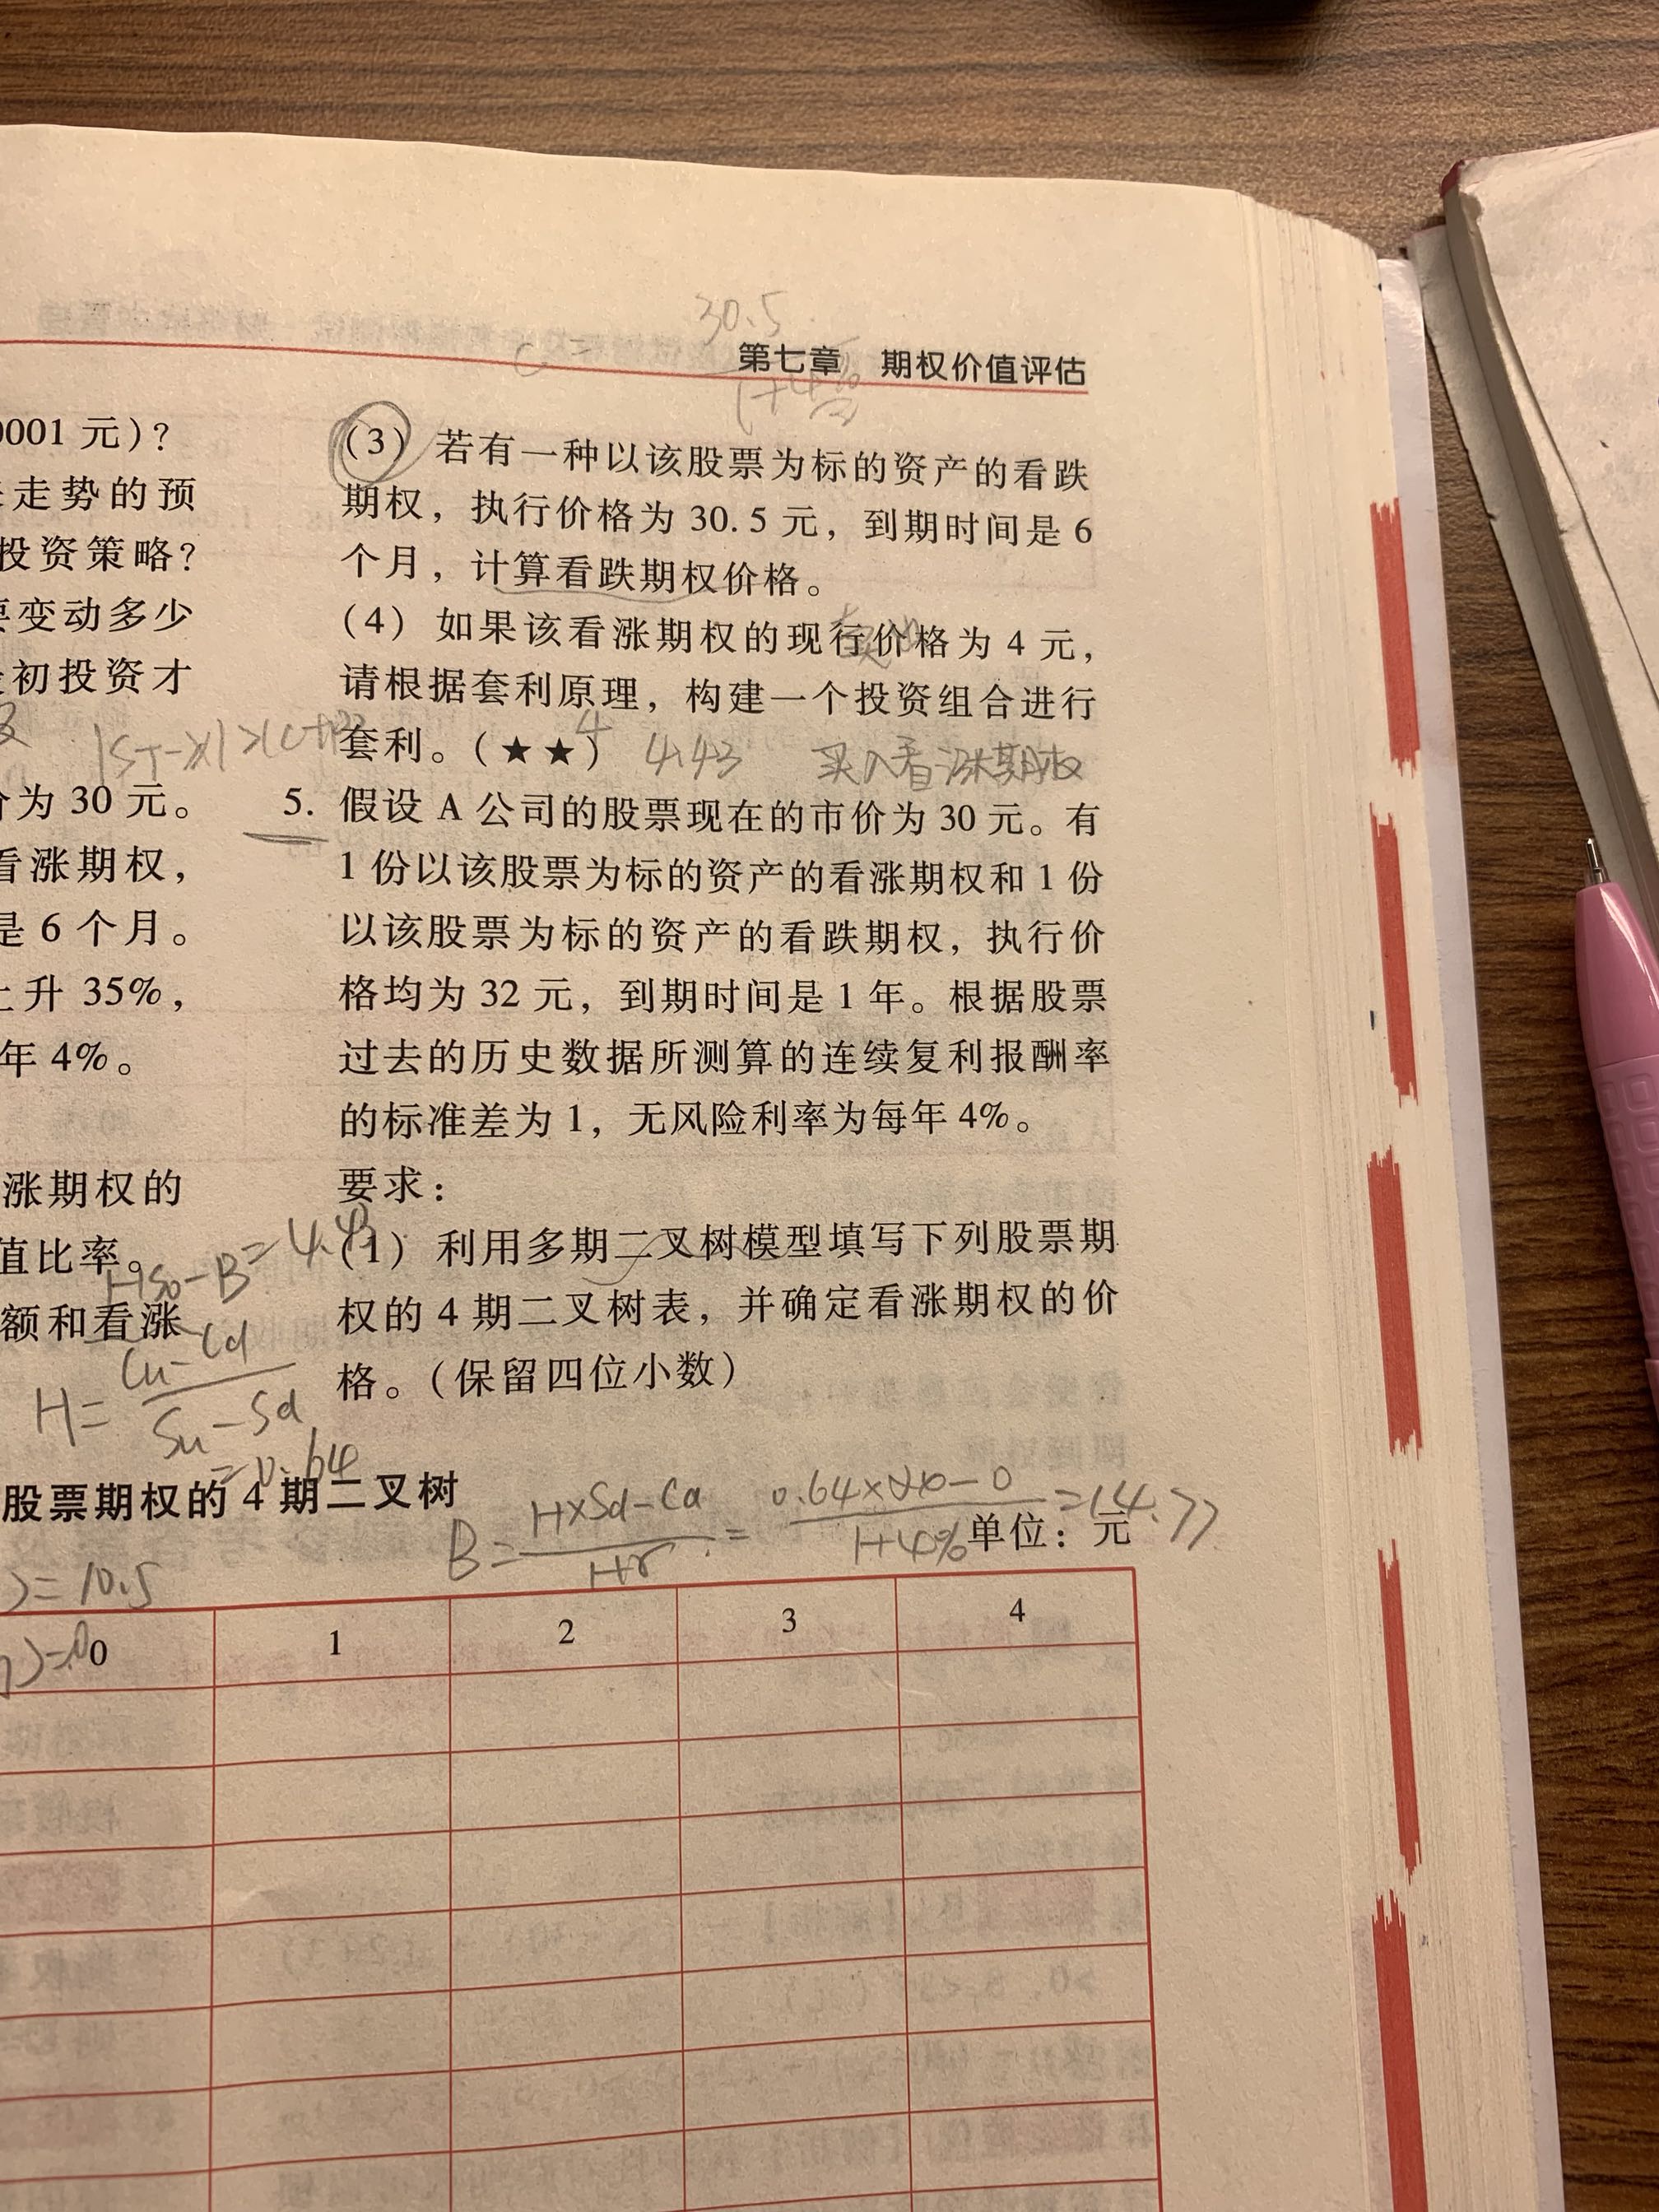 30.5
C =
第七章　期权价值评估
1+4%
2
0001 元)?
走势的预
投资策略?
要变动多少
初投资才
|ST-X|>(C+P)
价为 30 元。
看涨期权,
是 6 个月。
上升 35%,
年 4%。
涨期权的
值比率。
HS0-B=4.43
额和看涨
H= Cu-Cd
Su-Sd
=0.64
(3) 若有一种以该股票为标的资产的看跌
期权, 执行价格为 30.5 元, 到期时间是 6
个月, 计算看跌期权价格。
(4) 如果该看涨期权的现行价格为 4 元,
请根据套利原理, 构建一个投资组合进行
套利。(★★)
4
4.43 买入看涨期权
5. 假设 A 公司的股票现在的市价为 30 元。有
1 份以该股票为标的资产的看涨期权和 1 份
以该股票为标的资产的看跌期权, 执行价
格均为 32 元, 到期时间是 1 年。根据股票
过去的历史数据所测算的连续复利报酬率
的标准差为 1, 无风险利率为每年 4%。
要求:
(1) 利用多期二叉树模型填写下列股票期
权的 4 期二叉树表, 并确定看涨期权的价
格。(保留四位小数)
股票期权的 4 期二叉树
B= H×Sd-Cd = 0.64×24-0 =14.77
1+r 1+4%
单位: 元
)=10.5
)=0
0 1 2 3 4